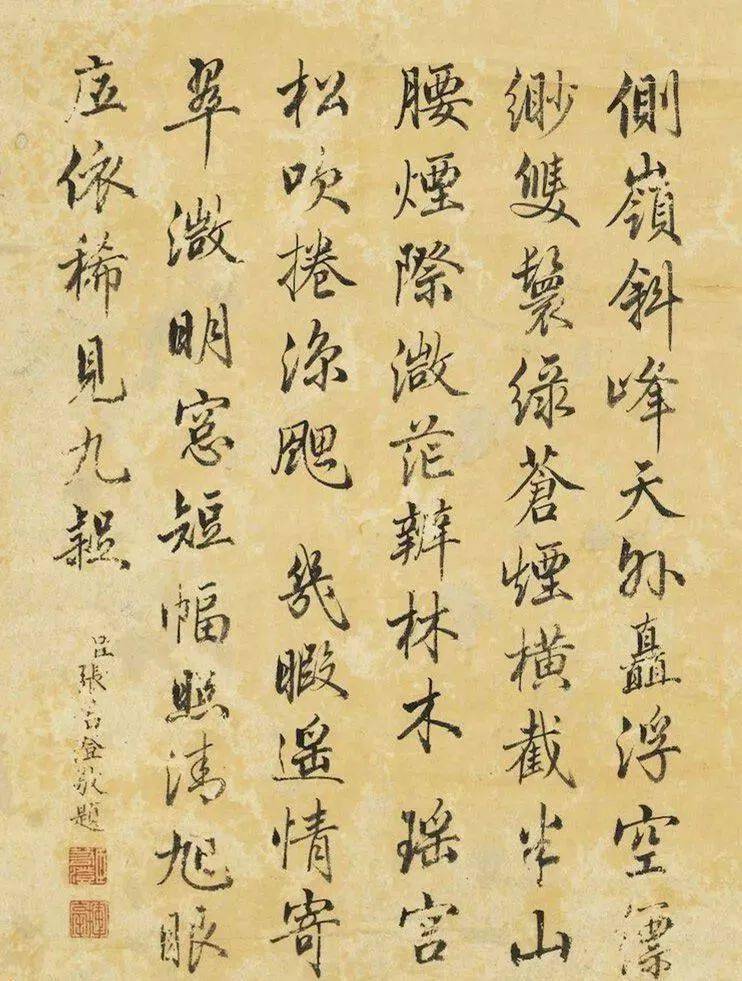 側嶺斜峰天外矗浮空縹
緲雙鬟綠蒼煙橫截半山
腰煙際微茫辨林木 瑤宮
松吹捲涼颸 幾暇遙情寄
翠微明窓短幅照清旭眼
底依稀見九疑
臣張若澄敬題